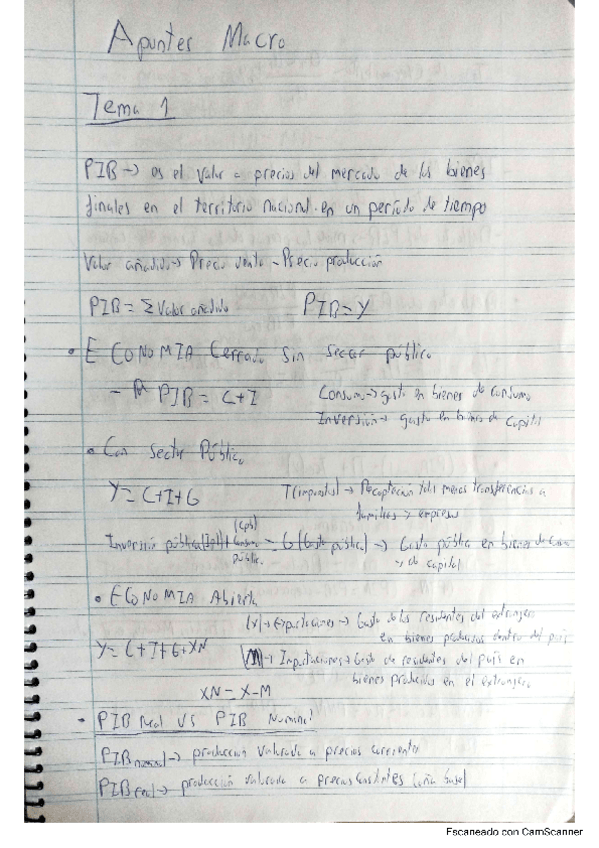 Apuntes Macro
Tema 1
PIB → es el valor a precios del mercado de los bienes
finales en el territorio nacional en un período de tiempo
Valor añadido → Precio venta - Precio producción
PIB = Σ Valor añadido PIB = Y
• ECONOMIA Cerrada sin sector público
- PIB = C+I Consumo → gasto en bienes de consumo
Inversión → gasto en bienes de capital
• Con sector Público
Y = C+I+G T(impuestos) → Recaptación total menos transferencias a
familias y empresas
Inversión pública (Ip) + Consumo pública (cp) = G (Gasto pública) → Gasto pública en bienes de
→ de capital
• ECONOMIA Abierta
(X) → Exportaciones → Gasto de los residentes del extranjero
en bienes producidos dentro del país
Y = C+I+G+XN (M) → Importaciones → Gasto de residentes del país en
bienes producidos en el extranjero
XN = X-M
• PIB Real VS PIB Nominal
PIB nominal → producción valorada a precios corrientes
PIB real → producción valorada a precios constantes (año base)